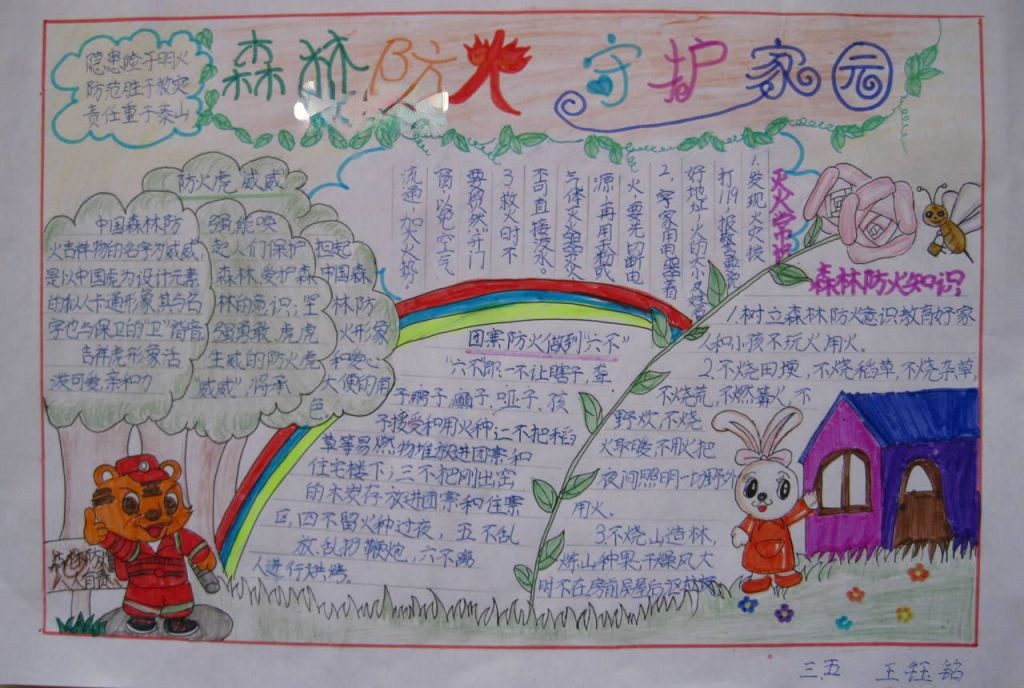 森林防火 守护家园
隐患险于明火
防范胜于救灾
责任重于泰山
防火虎 威威
中国森林防
火吉祥物的名字为威威,
是以中国虎为设计元素
的拟人卡通形象其与名
字也与保卫的"卫"谐音,
吉祥虎形象活
泼可爱亲和力
强,能唤
起人们保护
森林、爱护森
林的意识;坚
强勇敢、虎虎
生威的防火虎
威威",将承
担起
中国森
林防
火形象
和爱心
大使的角
色
灭火常识
1.发现火灾拨
打119报警要说
好地址,火的大小及
2,家用电器着
火,要先切断电
源,再用干粉或
气体灭火器灭火
不可直接泼水。
3救火时不
要贸然开门
窗以免空气
流通,加大火势。
团寨防火做到六不"
"六不"即:一不让瞎子,聋
子,痴子,疯子,哑子、孩
子接受和用火种;二不把稻
草等易燃物堆放进团寨和
住宅楼下;三不把刚出窑
的木炭存放进团寨和住寨
区,四不留火种过夜,五不乱
放、乱扔鞭炮,六不离
人进行烘烤。
森林防火知识
1.树立森林防火意识教育好家
人和小孩不玩火用火。
2.不烧田埂,不烧稻草,不烧杂草
不烧荒,不燃篝火,不
野炊,不烧
火取暖不用火把
夜间照明一切野外
用火。
3.不烧山造林,
炼山种果,干燥风大
时不在房前屋后
三.五 王钰铭